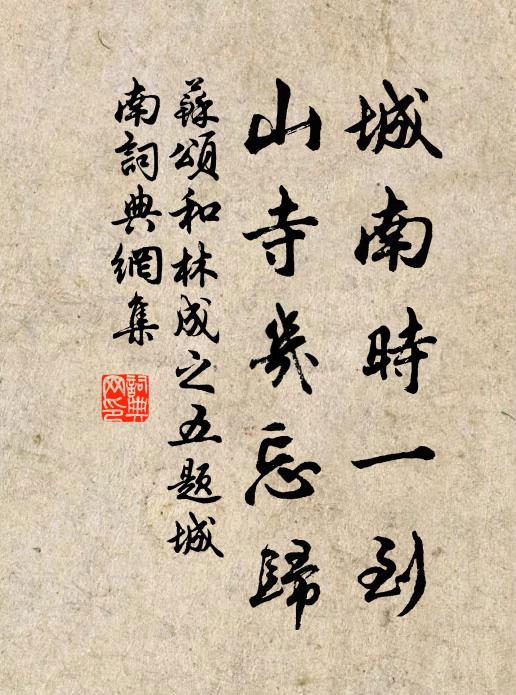 城南時一到
山寺幾忘歸
蘇頌和林成之五題城
南詞典網集
詞典
网印